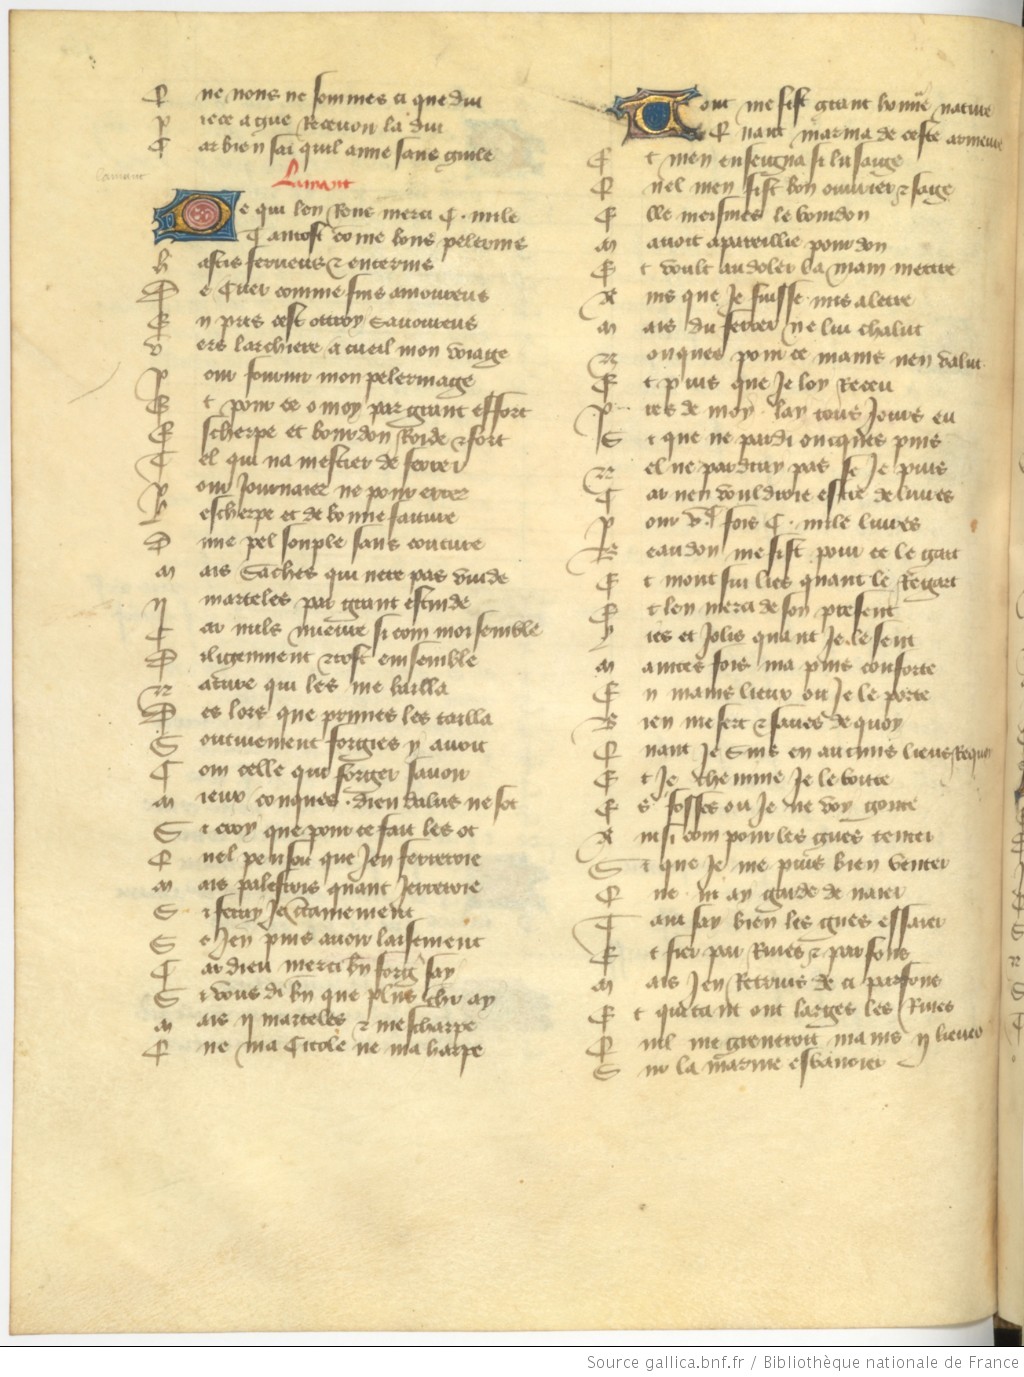 Q ne nous ne sommes ci que dui
P iece a que Receuon la dui
C ar bien sai quil aime sans guile
Lamant
lamant
D e qui len Rens merci C. mile
T antost come bons pelerins
h astis ferueus & enterins
D e Cuer comme fins amoureus
E n pres cest ottroy sauoureus
V ers larchiere acueil mon voiage
P our fournir mon pelerinage
E t pour ce o moy par grant effort
E scherpe et bourdon Roide & fort
T el qui na mestier de ferrer
P our Journaier ne pour errer
L escherpe est de bonne faiture
D une pel souple sans couture
M ais saches qui nere pas vuide
ij marteles par grant estuide
C ar nuls
D iligemment & tost ensemble
N ature qui les me bailla
D es lors que primes les tailla
S outiuement forgies y auoit
C om celle qui forger sauoit
M ieux conques dedalus ne sot
S i croy que pour ce fait les ot
Q uel pensoit que Jen ferreroie
M ais palefrois quant Jerreroie
S i feray Je certainement
S e Jen puis auoir laisement
C ar dieu merci bn forg say
S i vous di bn que plus chr ay
M ais ij marteles & mescharpe
Q ne ma Citole ne ma harpe
T out me fist grant bonne nature
Q uant marma de ceste armeure
E t men enseigna si lusaige
Q uel men fist bon ouurier & sage
E lle meismes le bourdon
M auoit apareillie pour don
E t voult au doler la main mettre
A ins que Je fuisse mis a lettre
M ais du ferrer ne lui chalut
N onques pour ce mains nen valut
E t puis que Je loy Receu
P res de moy lay tous Jours eu
S i que ne perdi oncques puis
N el ne perdray pas se Je puis
C ar nen vouldroie estre deliures
P our Vc fois C. mile liures
B eau don me fist pour ce le gart
E t mont sui lies quant le Regart
E t len merci de son present
L ies et Jolis quant Je le sent
M aintes fois ma puis conforte
E n mains lieux ou Je le porte
B ien me sert & saues de quoy
Q uant Je suis en aucuns lieus Requoy
E t Je chemine Je le boute
E s fosses ou Je ne voy goute
A insi com pour les gues tenter
S i que Je me puis bien venter
Q ne ni ay garde de naier
T ant say bien les gues essaier
E t fier par Riues & par fons
M ais Jen Retruis de si parfons
E t qui tant ont larges les Riues
Q uil me greueroit mains ij lieues
S ur la marine esbanoier